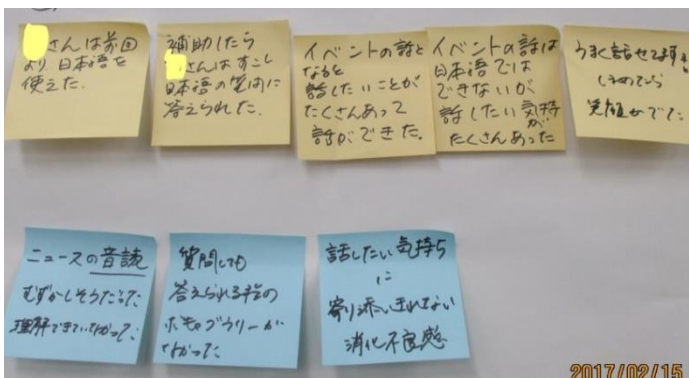 さんは前回
より日本語を
使えた.
補助したら
さんはすこし
日本語の質問に
答えられた.
イベントの話と
なると
話したいことが
たくさんあって
話ができた.
イベントの話は
日本語では
できないが
話したい気持
が
たくさんあった
うまく話せてます
笑顔がでた.
ニュースの音読
むずかしそうだった
理解できていなかった
質問しても
答えられる程の
ボキャブラリーが
なかった
話したい気持ち
に
寄り添いきれてない
消化不良感
2017/02/15